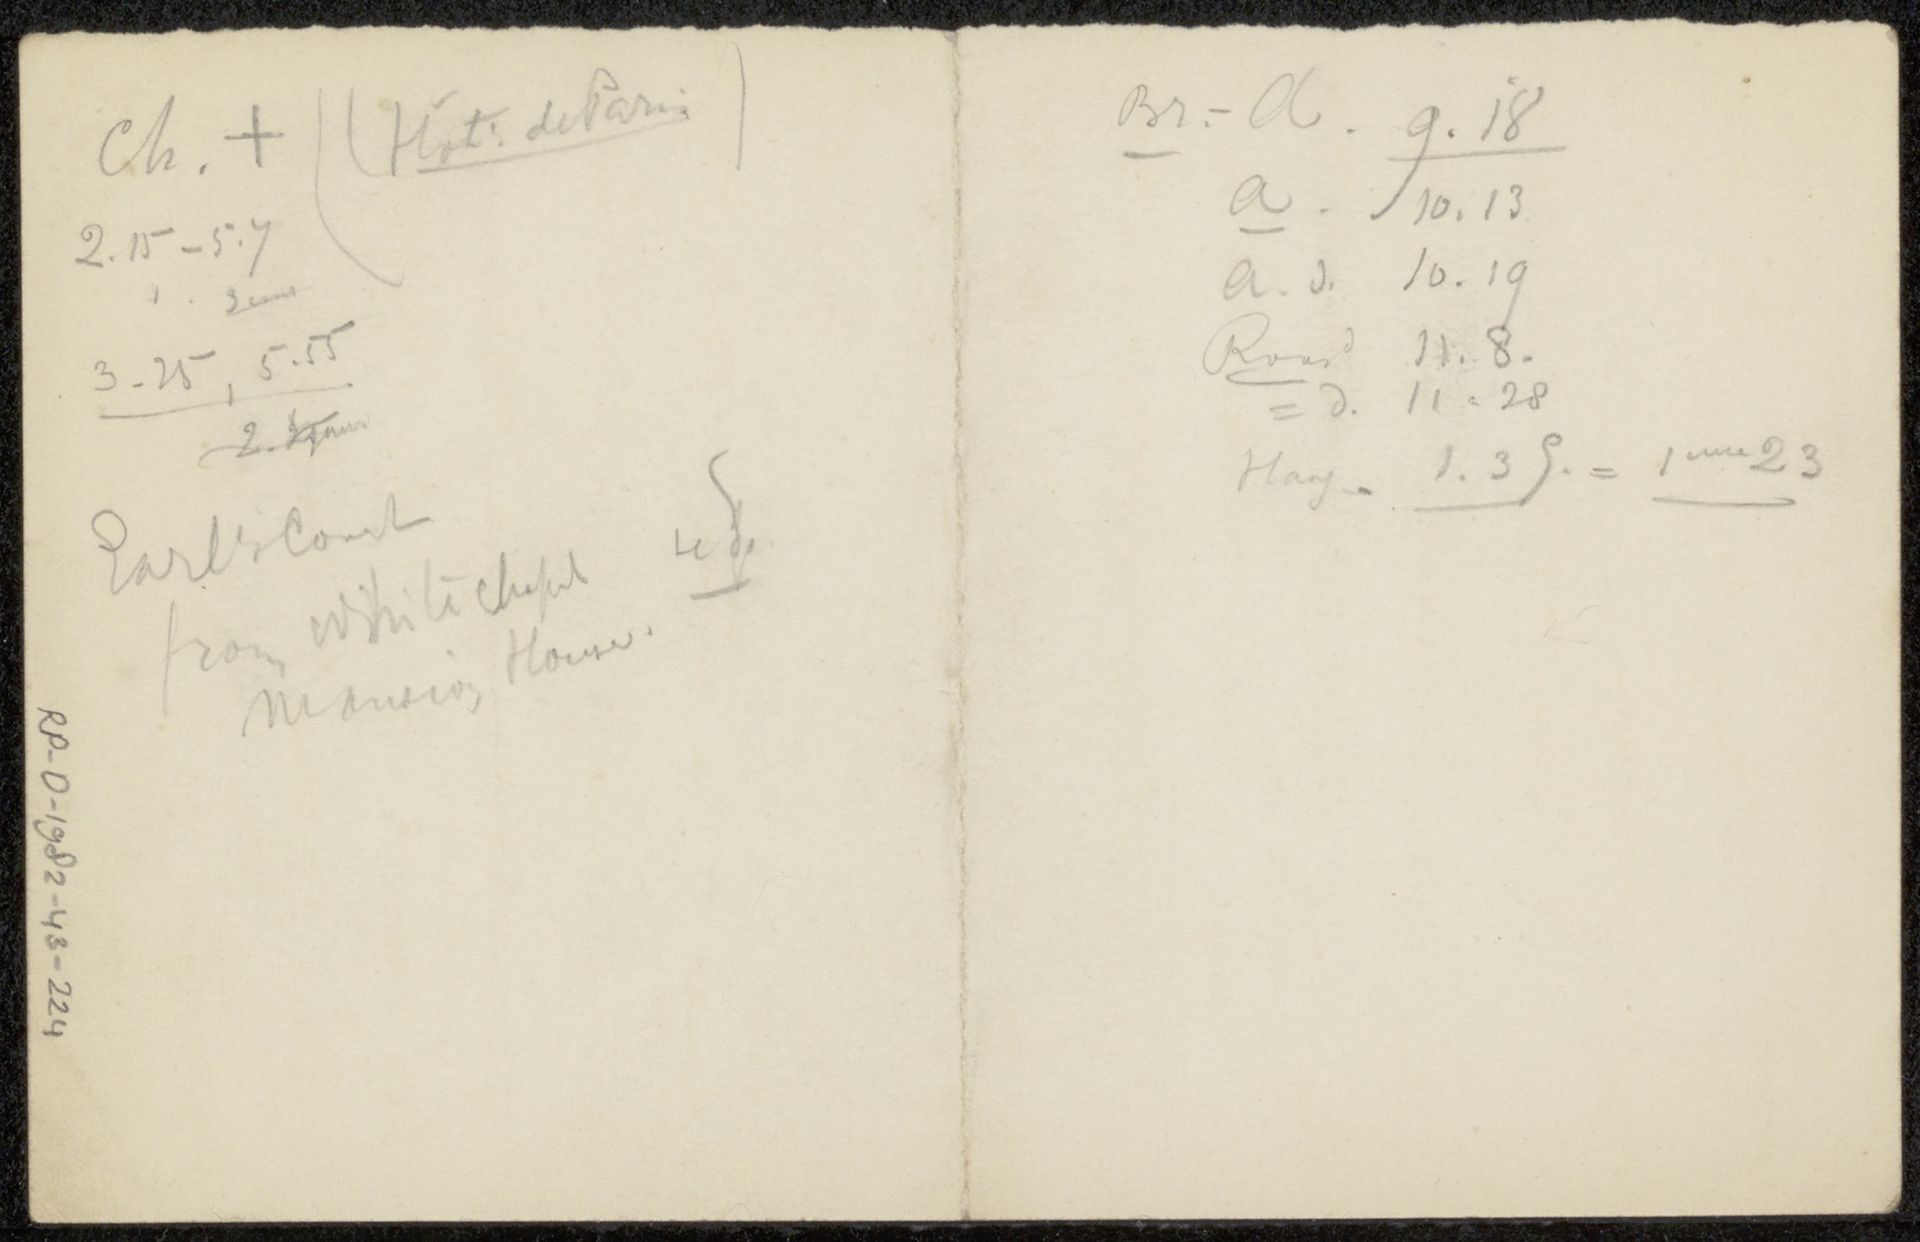 Ch. + (Hôt: de Paris)
2.15 - 5.7
3-25, 5.55
2.
Earl's Court
from White chapel
Mansion House.
4 d.
RP-D-1982-43-224
Br. = d. 9.18
a. 10.13
a. d. 10.19
Roosd 11.8.
= d. 11.28
Haag - 1.35. = 1 23